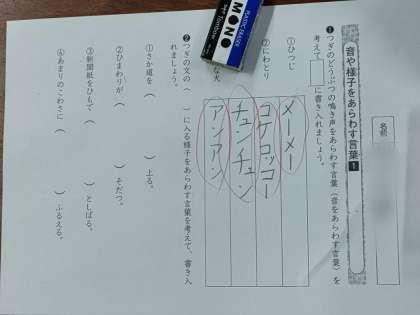 名前
音や様子をあらわす言葉 1
1 つぎのどうぶつの鳴き声をあらわす言葉(音をあらわす言葉)を
考えて□に書き入れましょう。
①ひつじ
メーメー
②にわとり
コケコッコー
チュンチュン
な犬
アンアン
2 つぎの文の( )に入る様子をあらわす言葉を考えて、書き入
れましょう。
①さか道を( )上る。
②ひまわりが( )そだつ。
③新聞紙をひもで( )としばる。
④あまりのこわさに( )ふるえる。
PLASTIC ERASER
MONO
Tombow